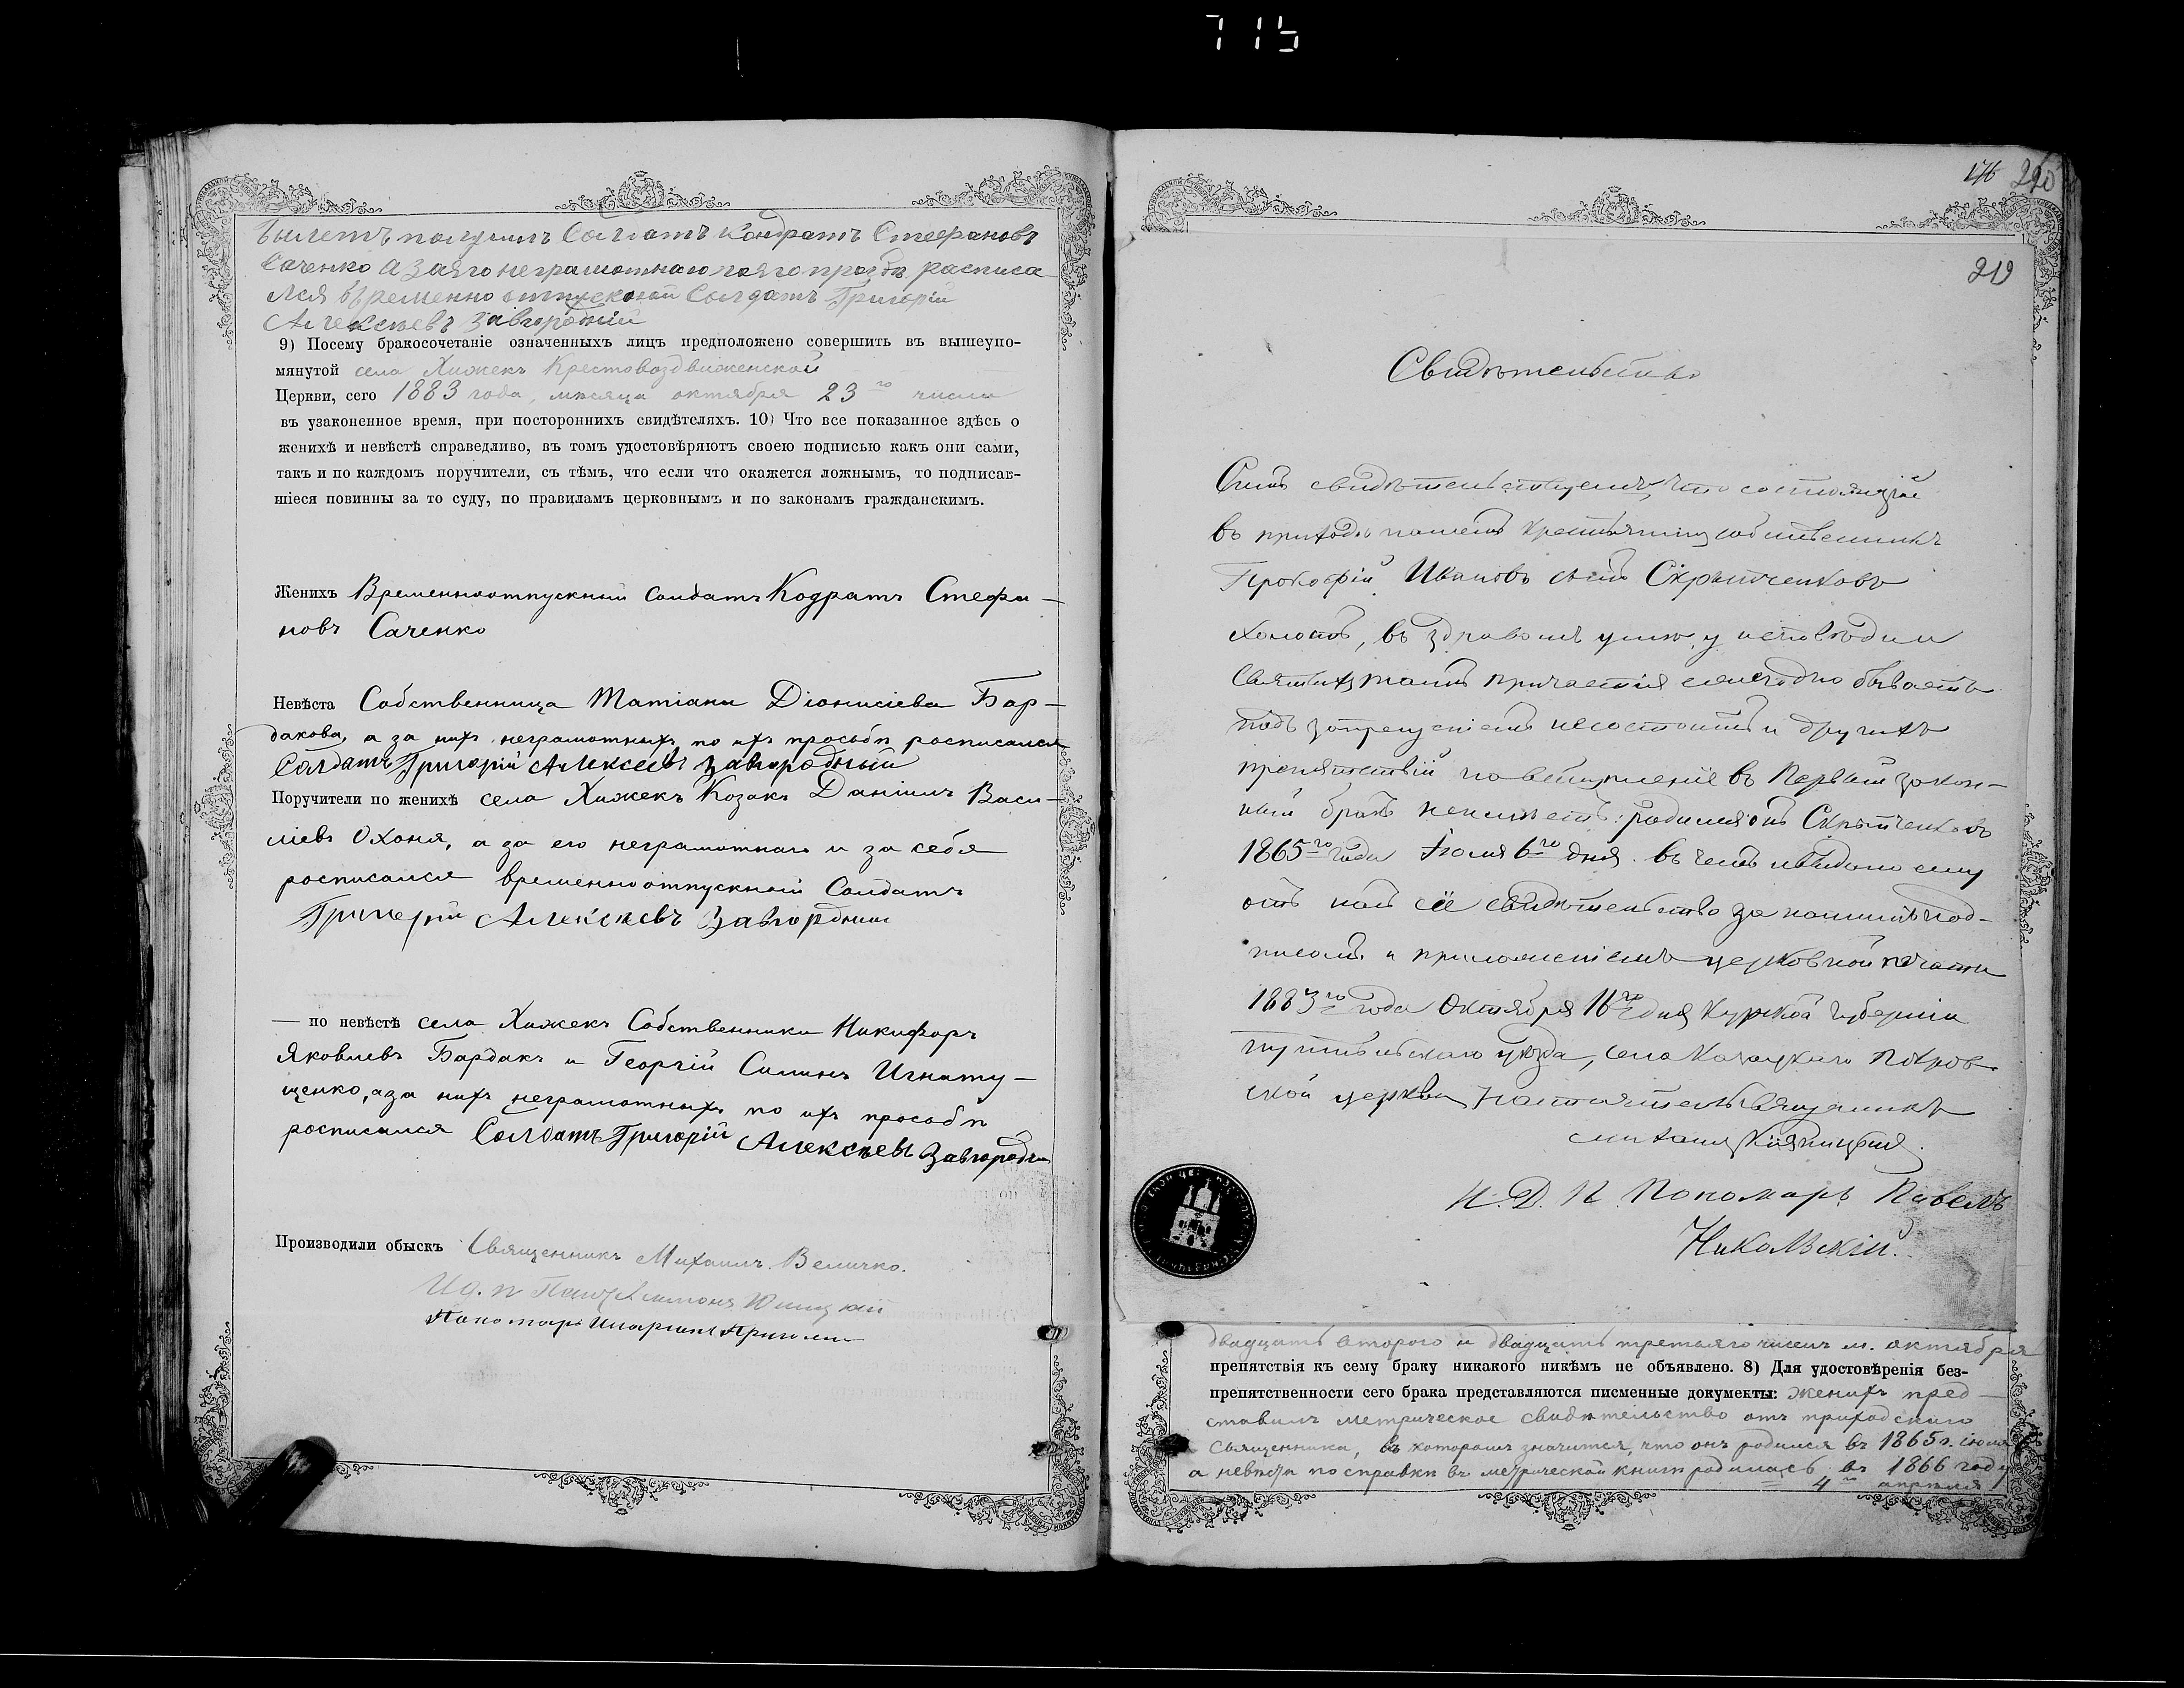 715
Билетъ получилъ Солдатъ Кондратъ Стефановъ
Саченко а заяго неграмотнаго пояго прозби расписа
лся времменно отпускной Солдатъ Григорій
Алексѣевъ Завгородній
9) Посему бракосочетаніе означенныхъ лицъ предположено совершить въ вышеупо-
мянутой села Хижекъ Крестовоздвиженской
Церкви, сего 1883 года, мѣсяца октября 23го числа
въ узаконенное время, при постороннихъ свидѣтеляхъ. 10) Что все показанное здѣсь о
женихѣ и невѣстѣ справедливо, въ томъ удостовѣряютъ своею подписью какъ они сами,
такъ и по каждомъ поручители, съ тѣмъ, что если что окажется ложнымъ, то подписав-
шіеся повинны за то суду, по правиламъ церковнымъ и по законамъ гражданскимъ.
Женихъ Временноотпускный солдатъ Кодратъ Стефа-
новъ Саченко
Невѣста Собственница Татіана Діонисіева Бар-
дакова, а за нихъ неграмотныхъ по ихъ просьбѣ росписался
Солдатъ Григорій Алексеевъ Завгородный
Поручители по женихѣ села Хижекъ Козакъ Даніилъ Васи-
ліевъ Охоня, а за его неграмотнаго и за себя
росписался временноотпускный Солдатъ
Григорій Алексѣевъ Завгордний
— по невѣстѣ села Хижекъ Собственники Никифоръ
Яковлевъ Бардакъ и Георгій Симинъ Игнату-
щенко, а за нихъ неграмотныхъ по ихъ просьбѣ
росписался Солдатъ Григорій Алексѣевъ Завгородній
Производили обыскъ Священникъ Михаилъ Величко.
Пономарь
176 220
219
Свидѣтельство
Симъ свидѣтельствуемъ, что состоящій
въ приходѣ нашемъ крестьянинъ собственникъ
Прокофій Ивановъ сынъ Скрипченковъ
холостъ, въ здравомъ умѣ, у исповѣди и
Святыхъ таинъ причастія ежегодно бываетъ
подъ запрещеніемъ несостоитъ и другихъ
препятствій по вступленіе въ Первый закон-
ный бракъ неимѣетъ: родился онъ Скрипченковъ
1865го года Іюля 6го дня. въ чемъ и выдано ему
отъ насъ сіе свидѣтельство за нашимъ под-
писомъ и приложеніемъ церковной печати
1883го года Октября 16го дня Курской Губерніи
Путивльскаго уѣзда, села Козацкаго Покров-
ской церкви Настоятель Священникъ
Михаилъ
И. Д. П. Пономарь Павелъ
Никольскій.
двадцать второго и двадцать третьяго чиселъ м. октября
препятствія къ сему браку никакого никѣмъ не объявлено. 8) Для удостовѣренія без-
препятственности сего брака представляются писменные документы: женихъ пред-
ставилъ метрическое свидѣтельство отъ приходскаго
священника, въ которомъ значится, что онъ родился въ 1865 г. іюля
а невѣста по справки въ метрической книги родилась въ 1866 году
4го апрѣля